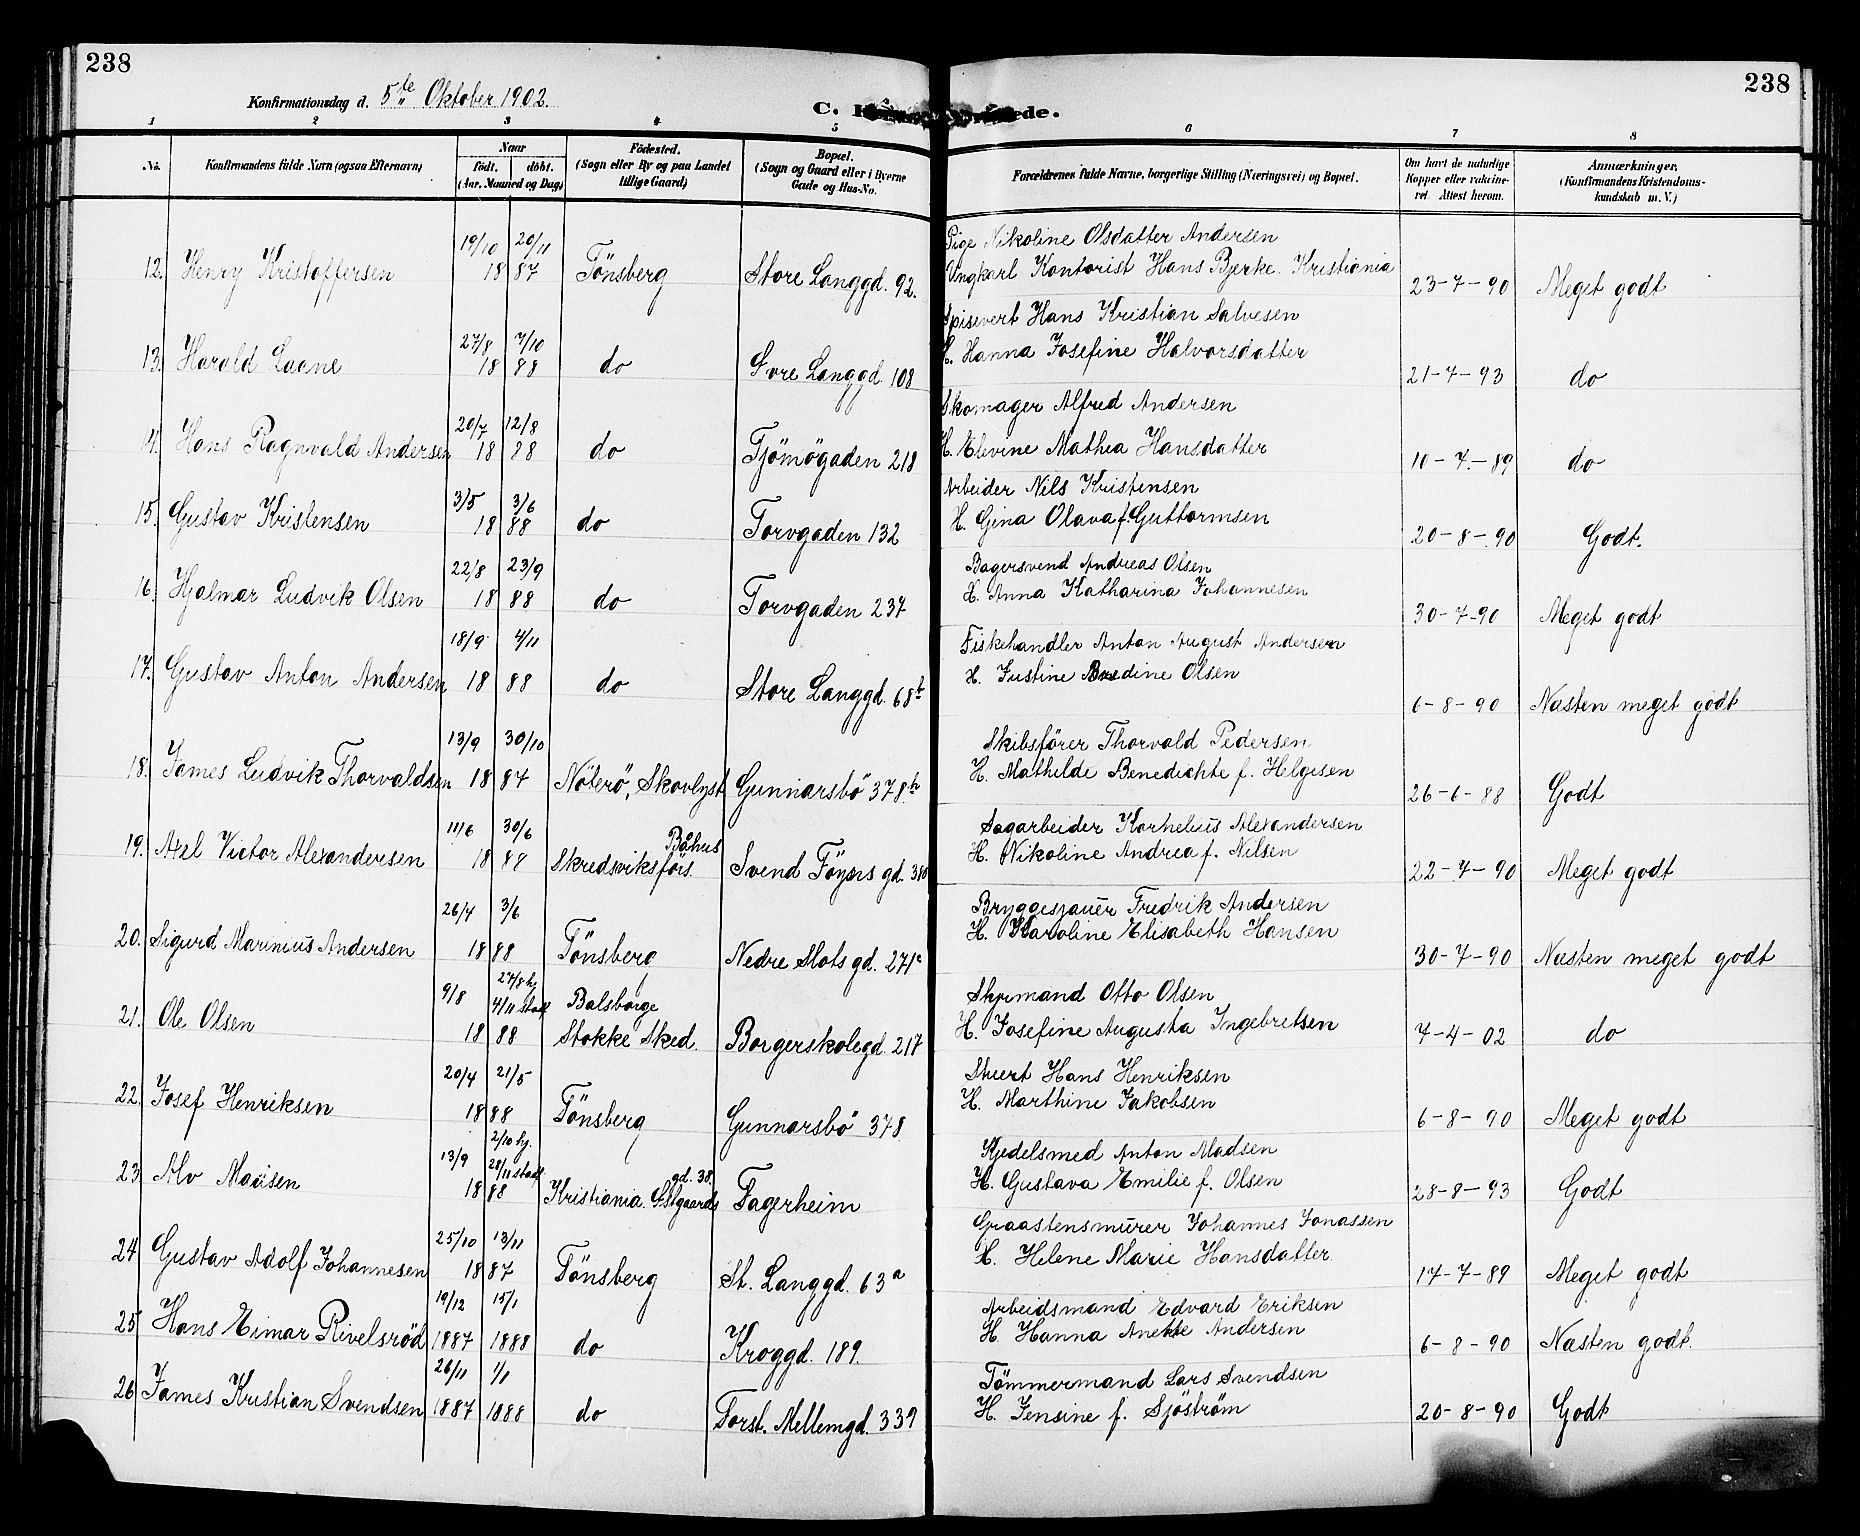 238
238
Konfirmationsdag d. 5te Oktober 1902.
C. ede.
1 2 3 4 5 6 7 8
No. Konfirmandens fulde Navn (ogsaa Efternavn) Naar født. døbt. (Aar, Maaned og Dag) Fødested. (Sogn eller By og paa Landet tillige Gaard) Bopæl. (Sogn og Gaard eller i Byerne Gade og Hus-No. Forældrenes fulde Navne, borgerlige Stilling (Næringsvei) og Bopæl. Om havt de naturlige Kopper eller vaccineret. Attest herom. Anmærkninger, (Konfirmandens Kristendomskundskab m. V.)
19/10 20/11 Pige Nikoline Olsdatter Andersen
12. Henry Kristoffersen 18 87 Tönsberg Store Langgd. 92. Ungkarl Kontorist Hans Bjerke. Kristiania 23-7-90 Meget godt
27/8 7/10 Spisevert Hans Kristian Salvesen
13. Harald Laane 18 88 do Övre Langgd. 108 H. Hanna Josefine Halvorsdatter 21-7-93 do
20/7 12/8 Skomager Alfred Andersen
14. Hans Ragnvald Andersen 18 88 do Tjömögaden 218 H. Elevine Mathea Hansdatter 10-7-89 do
3/5 3/6 Arbeider Nils Kristensen
15. Gustav Kristensen 18 88 do Torvgaden 132 H. Gina Olava f. Guttormsen 20-8-90 Godt.
22/8 23/9 Bagersvend Andreas Olsen
16. Hjalmar Ludvik Olsen 18 88 do Torvgaden 237 H. Anna Katharina Johannesen 30-7-90 Meget godt
18/9 4/11 Fiskehandler Anton August Andersen
17. Gustav Anton Andersen 18 88 do Store Langgd. 68b H. Justine Olsen 6-8-90 Næsten meget godt
13/9 30/10 Skibsförer Thorvald Pedersen
18. James Ludvik Thorvaldsen 18 87 Nöterö, Skovlyst Gunnarsbö 378b H. Mathilde Benedichte f. Helgesen 26-6-88 Godt
11/6 30/6 Båhus Sagarbeider Kornelius Alexandersen
19. Axel Victor Alexandersen 18 88 Skredsviksförs. Svend Föyns gd. H. Nikoline Andrea f. Nilsen 22-7-90 Meget godt
26/4 3/6 Bryggesjauer Fredrik Andersen
20. Sigurd Marinius Andersen 18 88 Tönsberg Nedre Slots gd. 271c H. Karoline Elisabeth Hansen 30-7-90 Næsten meget godt
9/8 27/8 hj. 4/11 stadf Balsborge Styrmand Otto Olsen
21. Ole Olsen 18 88 Stokke Sked. Borgerskolegd. 217 H. Josefine Augusta Ingebretsen 7-4-02 do
20/4 21/5 Stuert Hans Henriksen
22. Josef Henriksen 18 88 Tönsberg Gunnarsbö 378 H. Marthine Jakobsen 6-8-90 Meget godt
13/9 2/10 hj. 28/11 stadf gd. 38. Kjedelsmed Anton Madsen
23 Alv Madsen 18 88 Kristiania Östgaards Fagerheim H. Gustava Emilie f. Olsen 28-8-93 Godt
25/10 13/11 Graastensmurer Johannes Jonassen
24 Gustav Adolf Johannesen 18 87 Tönsberg St. Langgd. 63a H. Helene Marie Hansdatter 17-7-89 Meget godt
19/12 15/1 Arbeidsmand Edvard Eriksen
25 Hans Eimar Rivelsröd 1887 1888 do Kroggd. 189. H. Hanna Anette Andersen 6-8-90 Næsten godt.
26/11 1/1 Tömmermand Lars Svendsen
26 James Kristian Svendsen 1887 1888 do Forst. Mellemgd. 339 H. Jensine f. Sjöström 20-8-90 Godt